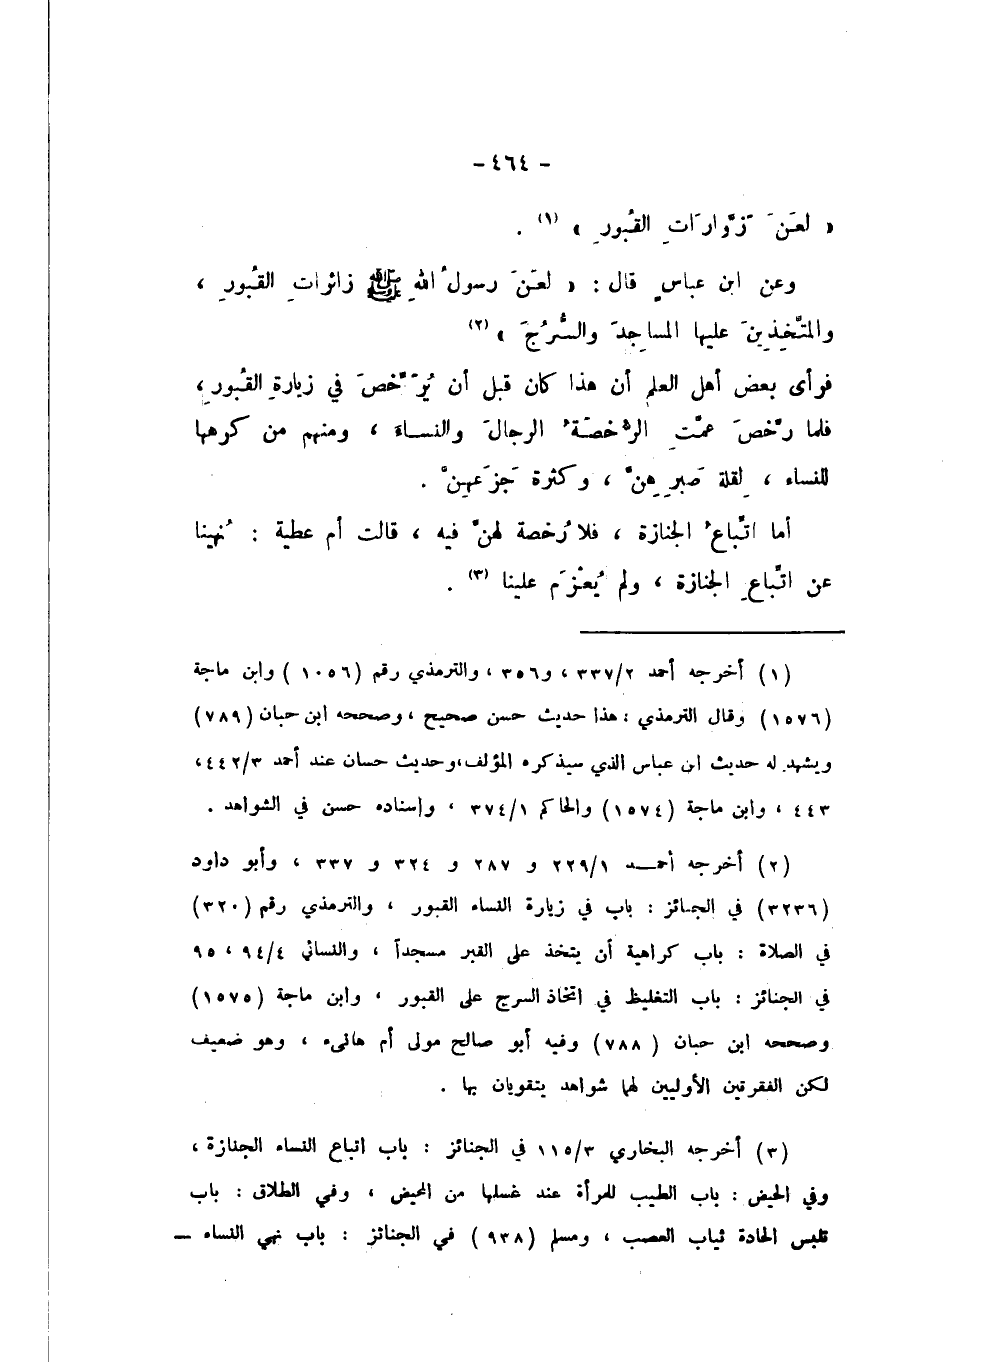 - ٤٦٤ -
« لعَنَ زَوَّارَاتِ القُبورِ » (١) .
وعن ابن عباسٍ قال : « لعَنَ رسولُ اللهِ ﷺ زائراتِ القُبورِ ،
والمتَّخِذِينَ عليها المساجِدَ والسُّرُجَ » (٢)
فرأى بعض أهل العلم أن هذا كان قبل أن يُرَخَّصَ في زيارةِ القُبورِ ،
فلما رخَّصَ عمَّتِ الرُّخصَةُ الرجالَ والنساءَ ، ومنهم من كرهها
للنساء ، لِقلة صَبرِهِنَّ ، وكثرة جَزَعِهِنَّ .
أما اتِّباعُ الجنازة ، فلا رُخصة لهنَّ فيه ، قالت أم عطية : نُهينا
عن اتِّباعِ الجنازة ، ولم يُعْزَم علينا (٣) .
(١) أخرجه أحمد ٣٣٧/٢ ، و٣٥٦ ، والترمذي رقم (١٠٥٦) وابن ماجة
(١٥٧٦) وقال الترمذي : هذا حديث حسن صحيح ، وصححه ابن حبان (٧٨٩)
ويشهد له حديث ابن عباس الذي سيذكره المؤلف ، وحديث حسان عند أحمد ٤٤٢/٣ ،
٤٤٣ ، وابن ماجة (١٥٧٤) والحاكم ٣٧٤/١ ، وإسناده حسن في الشواهد .
(٢) أخرجه أحمـــد ٢٢٩/١ و ٢٨٧ و ٣٢٤ و ٣٣٧ ، وأبو داود
(٣٢٣٦) في الجنائز : باب في زيارة النساء القبور ، والترمذي رقم (٣٢٠)
في الصلاة : باب كراهية أن يتخذ على القبر مسجداً ، والنسائي ٩٤/٤ ، ٩٥
في الجنائز : باب التغليظ في اتخاذ السرج على القبور ، وابن ماجة (١٥٧٥)
وصححه ابن حبان (٧٨٨) وفيه أبو صالح مولى أم هانىء ، وهو ضعيف
لكن الفقرتين الأوليين لهما شواهد يتقويان بها .
(٣) أخرجه البخاري ١١٥/٣ في الجنائز : باب اتباع النساء الجنازة ،
وفي الحيض : باب الطيب للمرأة عند غسلها من المحيض ، وفي الطلاق : باب
تلبس الحادة ثياب العصب ، ومسلم (٩٣٨) في الجنائز : باب نهي النساء —